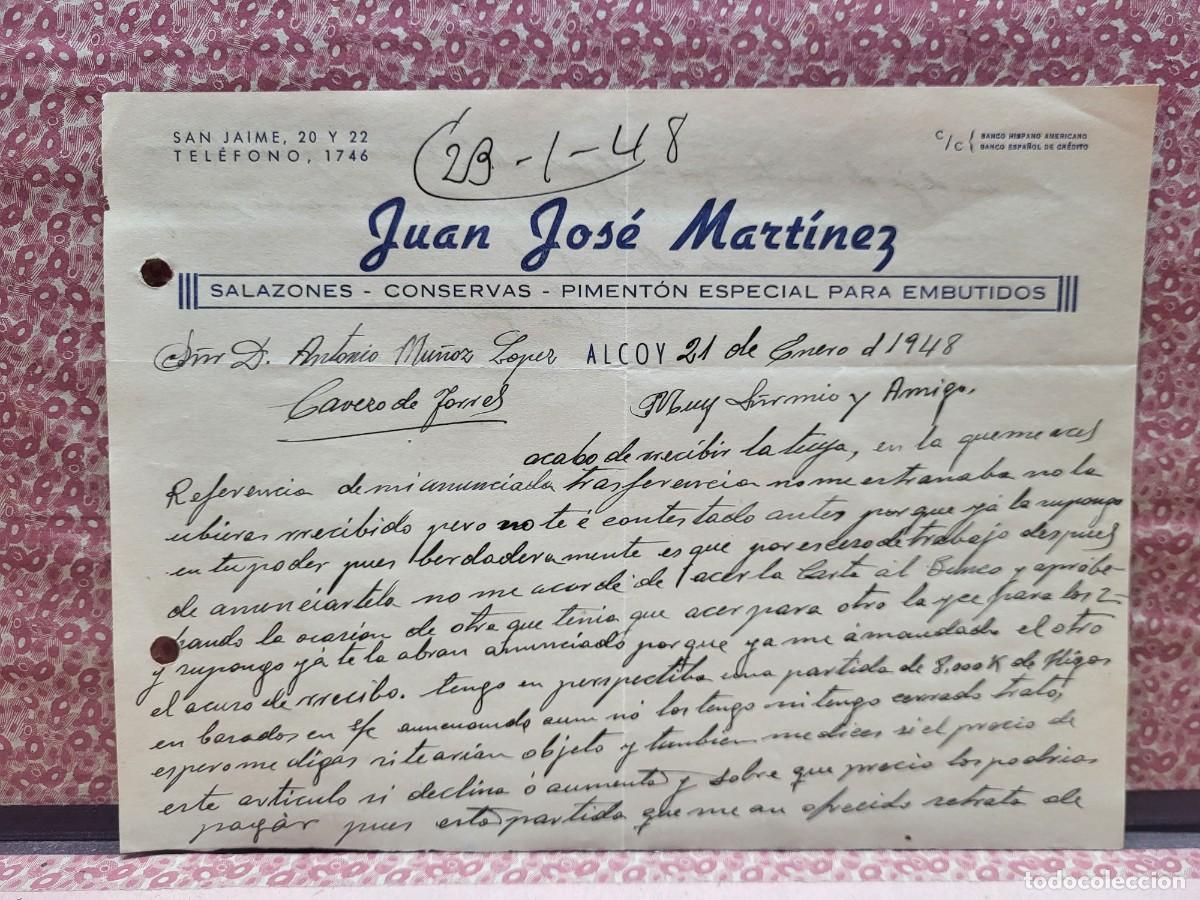 SAN JAIME, 20 Y 22
TELÉFONO, 1746
23-1-48
C/C BANCO HISPANO AMERICANO
BANCO ESPAÑOL DE CRÉDITO
Juan José Martínez
SALAZONES - CONSERVAS - PIMENTÓN ESPECIAL PARA EMBUTIDOS
Snr D. Antonio Muñoz Lopez ALCOY 21 de Enero d 1948
de Torres Muy Snr mio y Amigo,
acabo de rrecibir la tuya, en la que me aces
Referencia de mi anunciada trasferencia no me estranaba no la
ubieras rrecibido pero no te é contestado antes por que já la supongo
en tu poder pues berdaderamente es que por esceso de trabajo despues
de anunciartela no me acordé de acer la Carta al Banco y aprobe-
chando la ocasión de otra que tenia que acer para otro la yce para los 2
y supongo já te la abran anunciado por que ya me á mandado el otro
el acuso de rrecibo. tengo en perspectiba una partida de 8.000 K de Higos
en s/c aun nó los tengo ni tengo cerrado trato,
espero me digas si te arian objeto y tambien me dices si el precio de
este articulo si declina ó aumenta y sobre que precio los podrias
pagár pues esta partida que me an ofrecido se trata de
todocoleccion